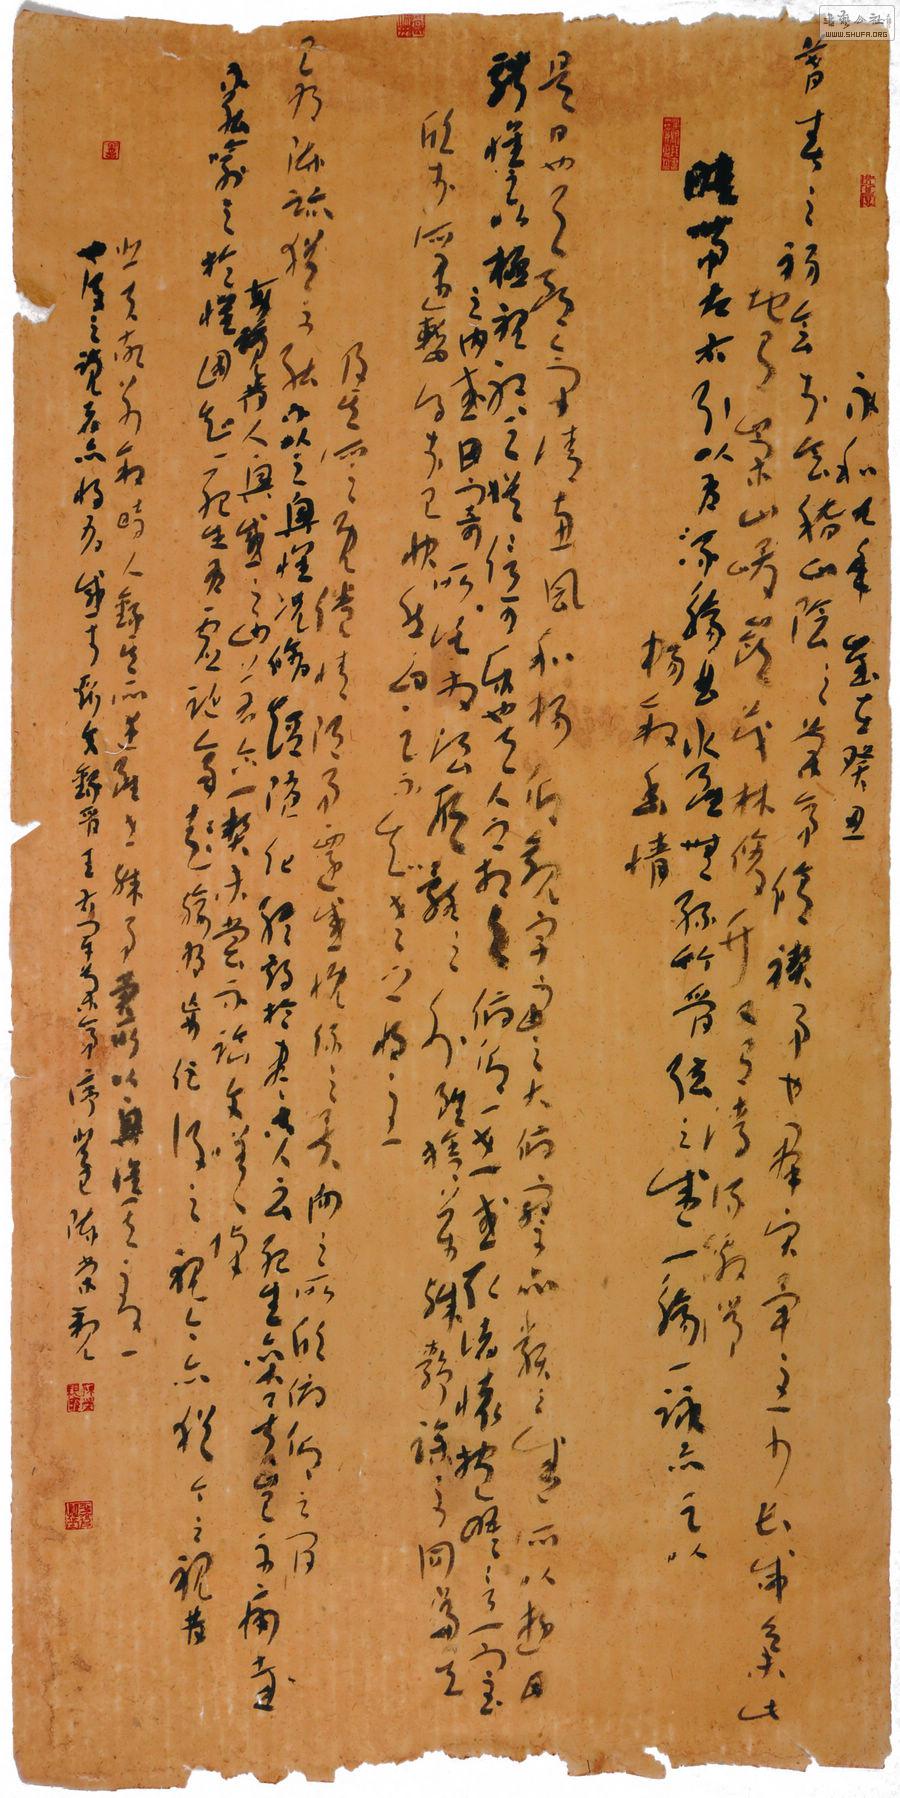 永和九年歲在癸丑
暮春之初會于會稽山陰之蘭亭脩禊事也羣賢畢至少長咸集此
地有崇山峻嶺茂林脩竹又有清流激
暎帶左右引以為流觴曲水無絲竹管弦之盛一觴一詠亦足以
暢敘幽情
是日也天朗氣清惠風和暢仰觀宇宙之大俯察品類之盛所以遊目
騁懷足以極視聽之娛信可樂也夫人之相與俯仰一世或取諸懷抱悟言一室
之內或因寄所託放浪形骸之外雖趣舍萬殊靜躁不同當其
欣於所遇暫得於己快然自足不知老之將至
及其所之既倦情隨事遷感慨係之矣向之所欣俯仰之間
已為陳迹猶不能不以之興懷況脩短隨化終期於盡古人云死生亦大矣豈不痛哉
每攬昔人興感之由若合一契未嘗不臨文嗟悼
不能喻之於懷固知一死生為虛誕齊彭殤為妄作後之視今亦猶今之視昔
悲夫故列敘時人錄其所述雖世殊事異所以興懷其致一
也後之覽者亦將有感於斯文錄晉王右軍蘭亭序
書法公社
WWW.SHUFA.ORG